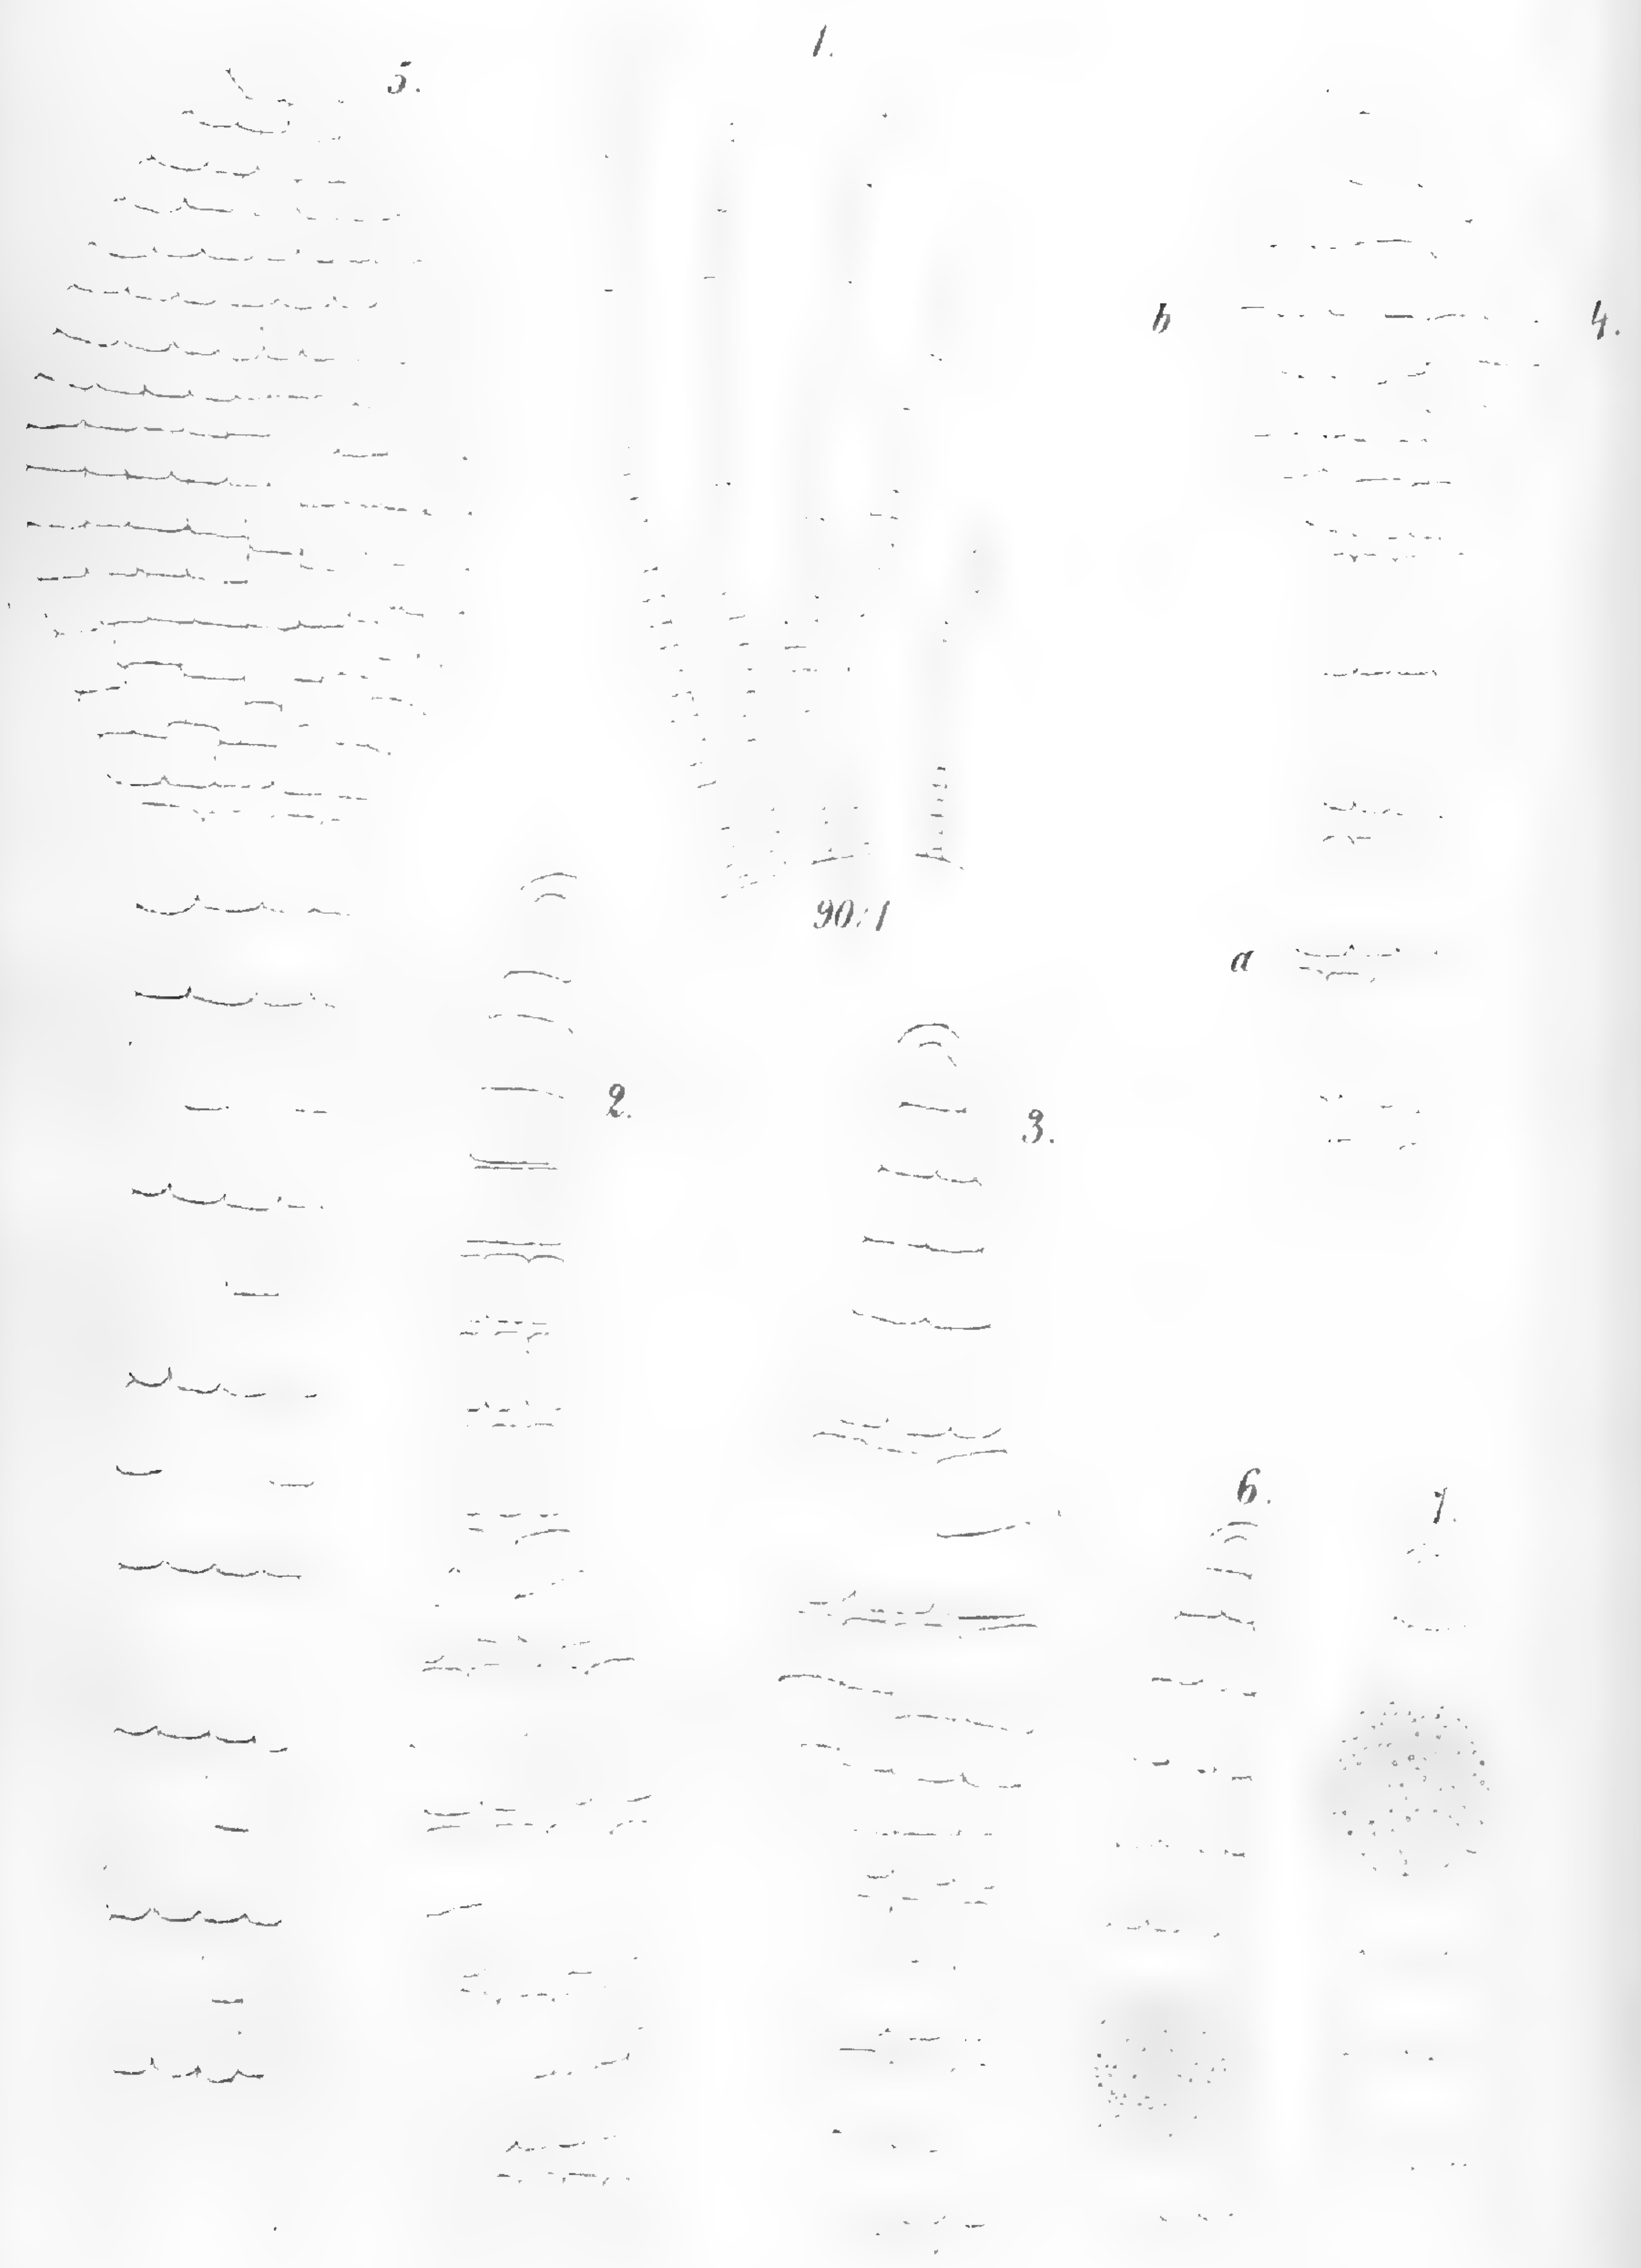 1.
5.
b
4.
90:1
a
2.
3.
6.
7.